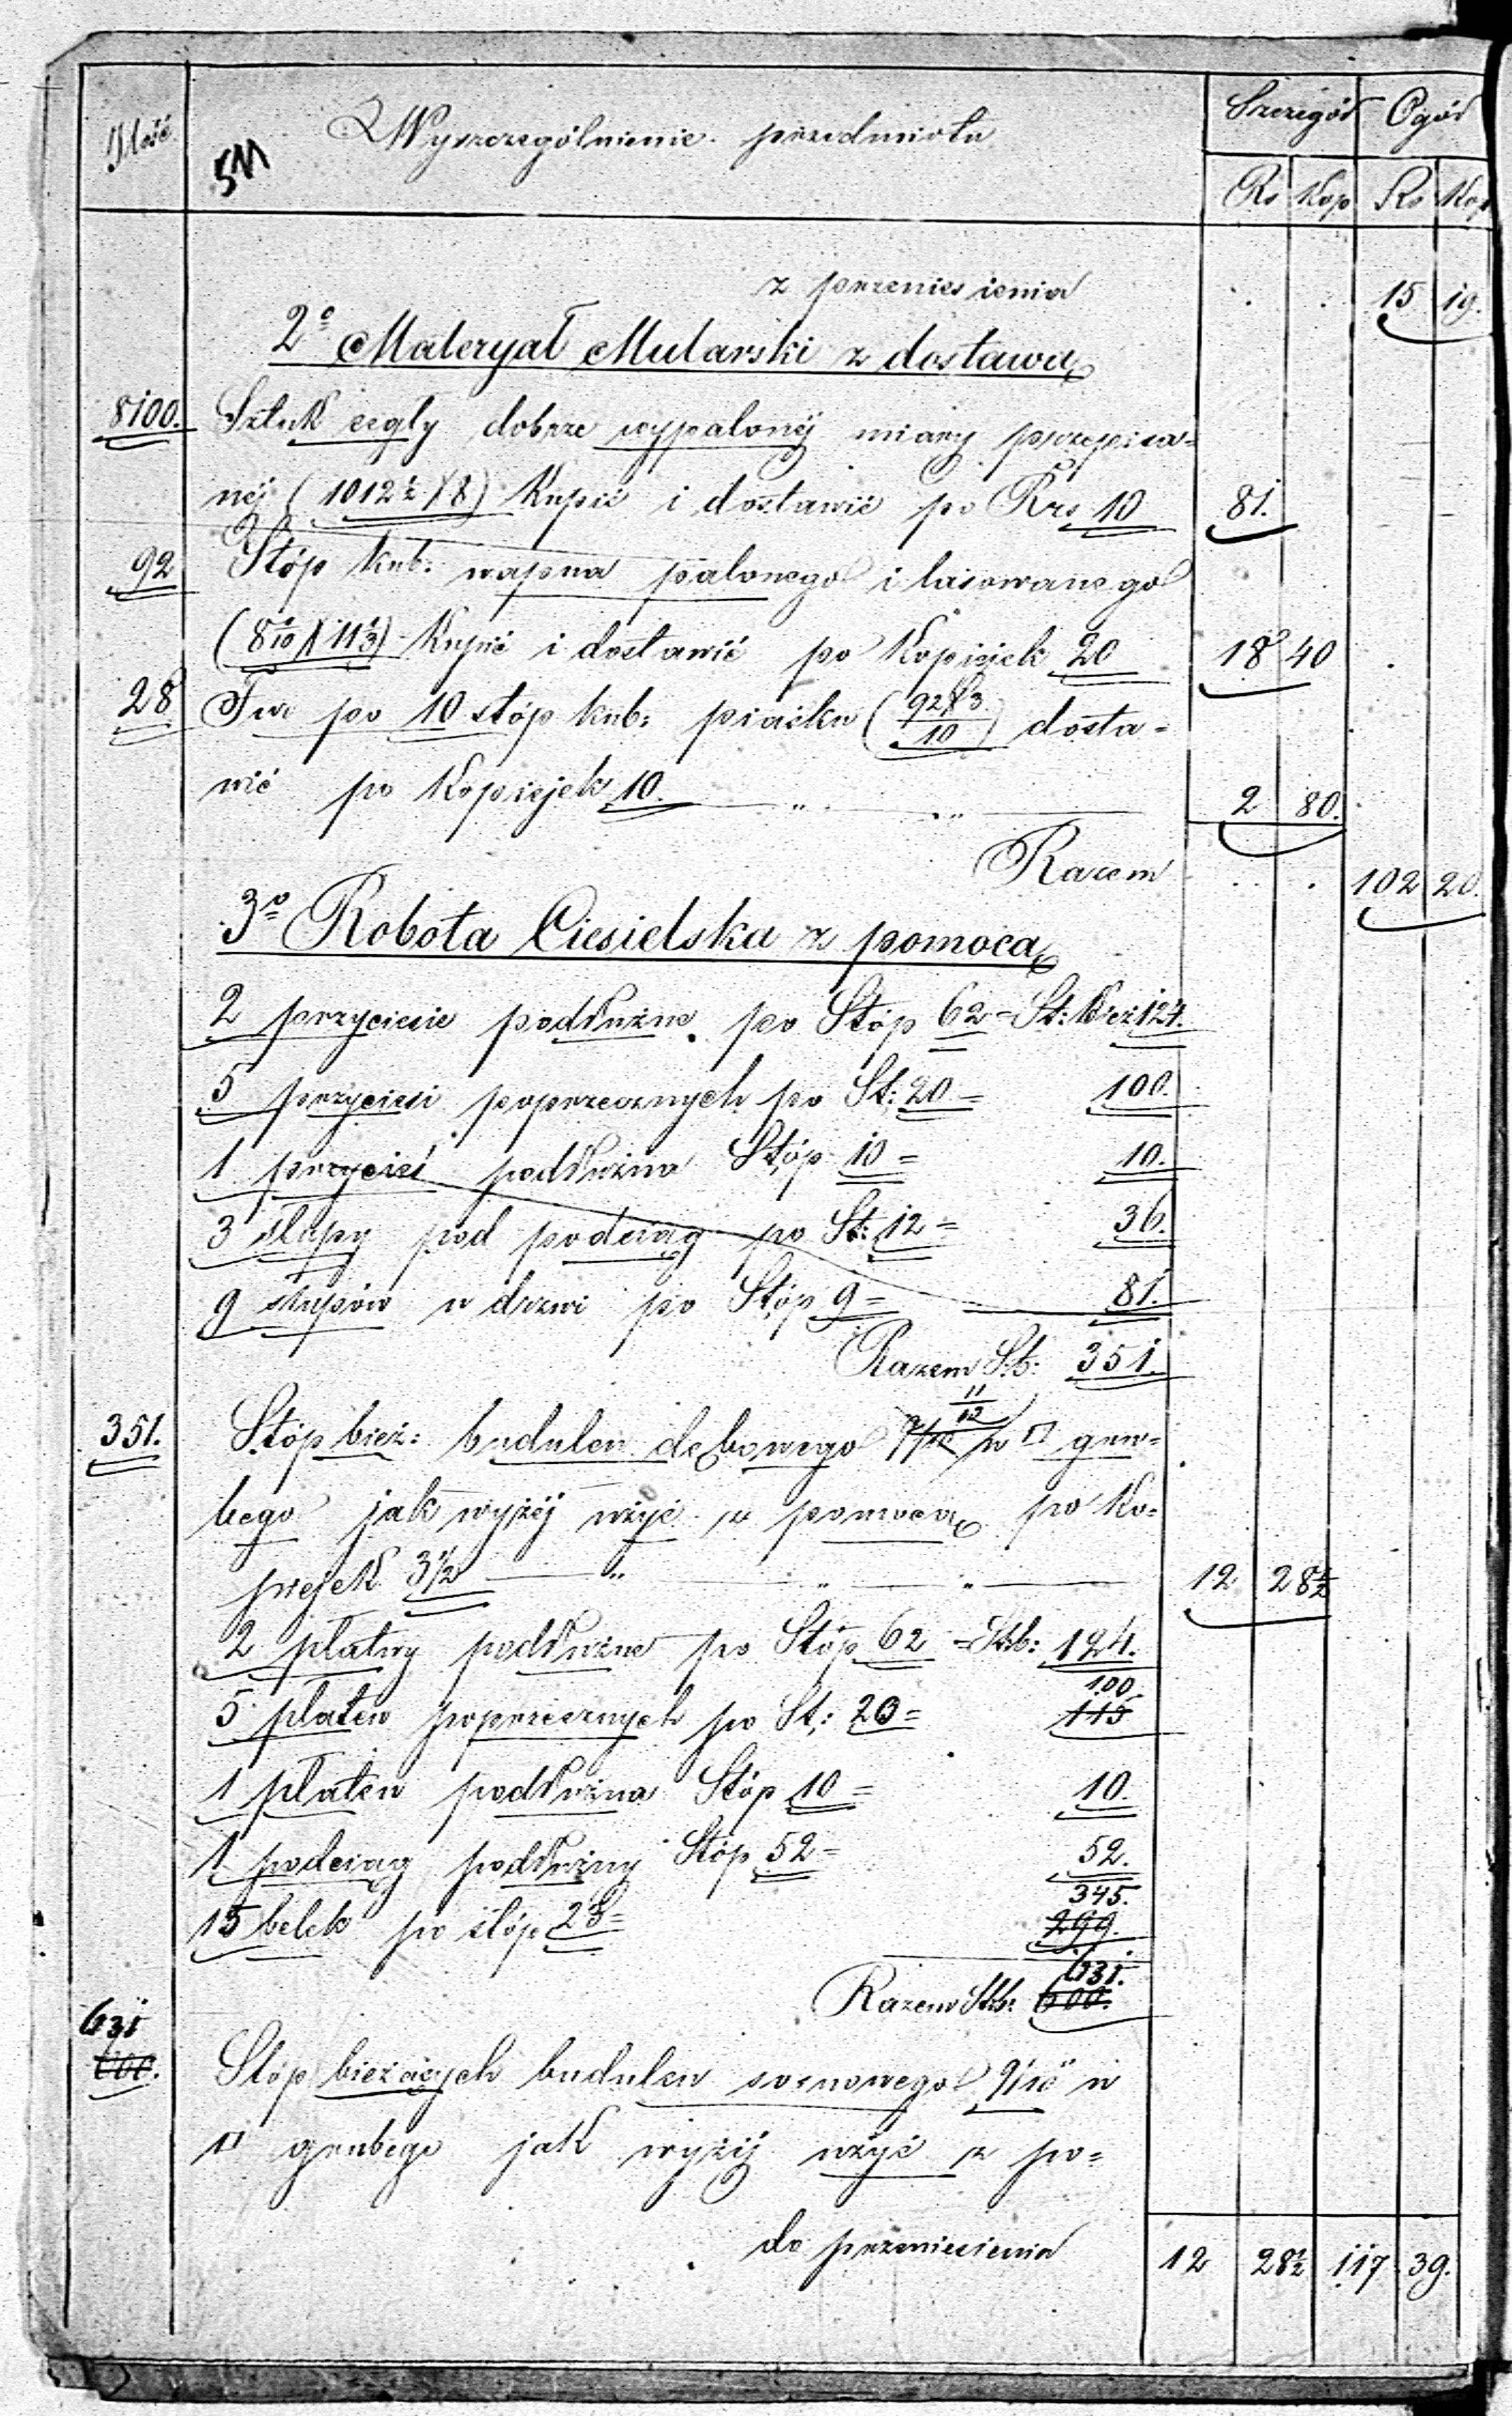 Ilość Wyszczególnienie przedmiotu Szczegół Ogół
5M
Rs Kop Rs Kop
z przeniesienia 15 19.
2º Materyał Mularski z dostawą
8100. Sztuk cegły dobrze wypalonéj miary przepisa=
néj (1012½ X 8) Kupić i dostawić po Rrs 10 81.
92 Stóp kub: wapna palonego i lasowanego
(8 1/10 X 11⅓) Kupić i dostawić po Kopiejek 20 18 40
28 Fur po 10 stóp kub: piasku (92X3/10) dosta=
wić po Kopiejek 10. „ „ 2 80.
Razem 102 20.
3º Robota Ciesielska z pomocą
2 przyciesie podłużne po Stóp 62 = St: bież 124.
5 przyciesi poprzecznych po St: 20 = 100.
1 przycieś podłużna Stóp 10 = 10.
3 słupy pod podciąg po St: 12 = 36.
9 słupów u drzwi po Stóp 9 = 81.
Razem St: 351.
11/12
351. Stóp bież: budulcu dębowego w □ gru=
bego jak wyżéj użyć z pomocą po Ko=
piejek 3½ „ „ „ 12 28½
2 płatwy podłużne po Stóp 62 = Stb: 124.
100.
5 płatew poprzecznych po St: 20 = 115
1 płatew podłużna Stóp 10 = 10.
1 podciąg podłużny Stóp 52 = 52.
345.
15 belek po stóp 23 = 299.
631.
Razem Stb: 600.
631
600. Stóp bieżących budulcu sosnowego 9/10" w
□ grubego jak wyżéj użyć z po=
do przeniesienia 12 28½ 117 39.